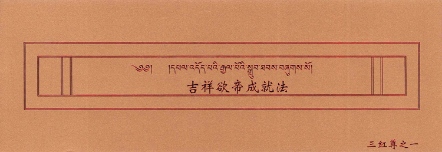 ༄༅། །དཔལ་འདོད་པའི་རྒྱལ་པོའི་སྒྲུབ་ཐབས་བཞུགས་སོ།
吉祥欲帝成就法
三红尊之一